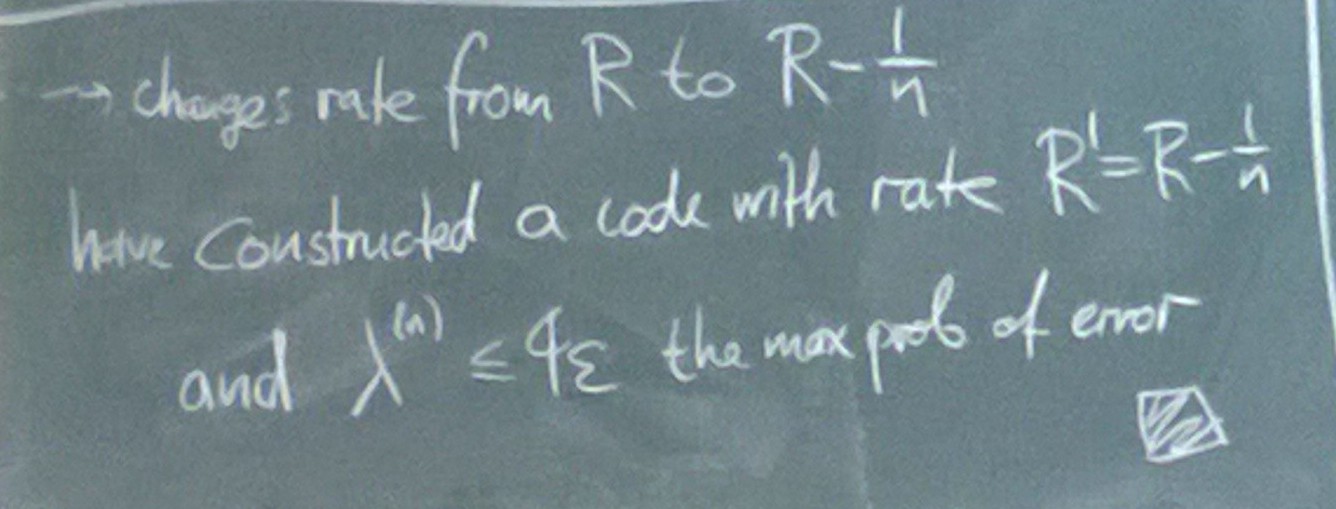 → changes rate from R to R - 1/n
have constructed a code with rate R' = R - 1/n
and λ^(n) ≤ 4ε the max prob of error